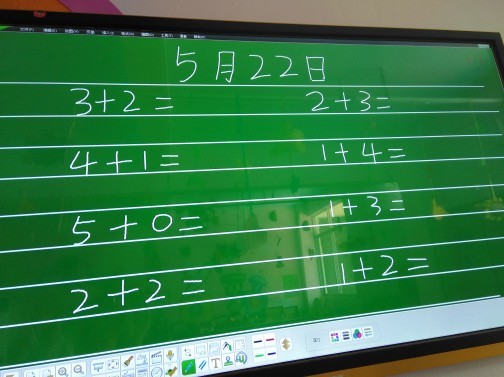 5月22日
3+2= 2+3=
4+1= 1+4=
5+0= 1+3=
2+2= 1+2=